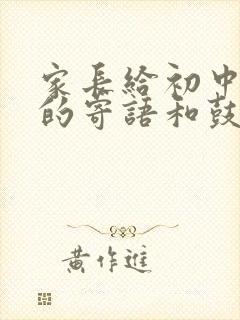 家長給初中
的寄語和鼓
黃作進